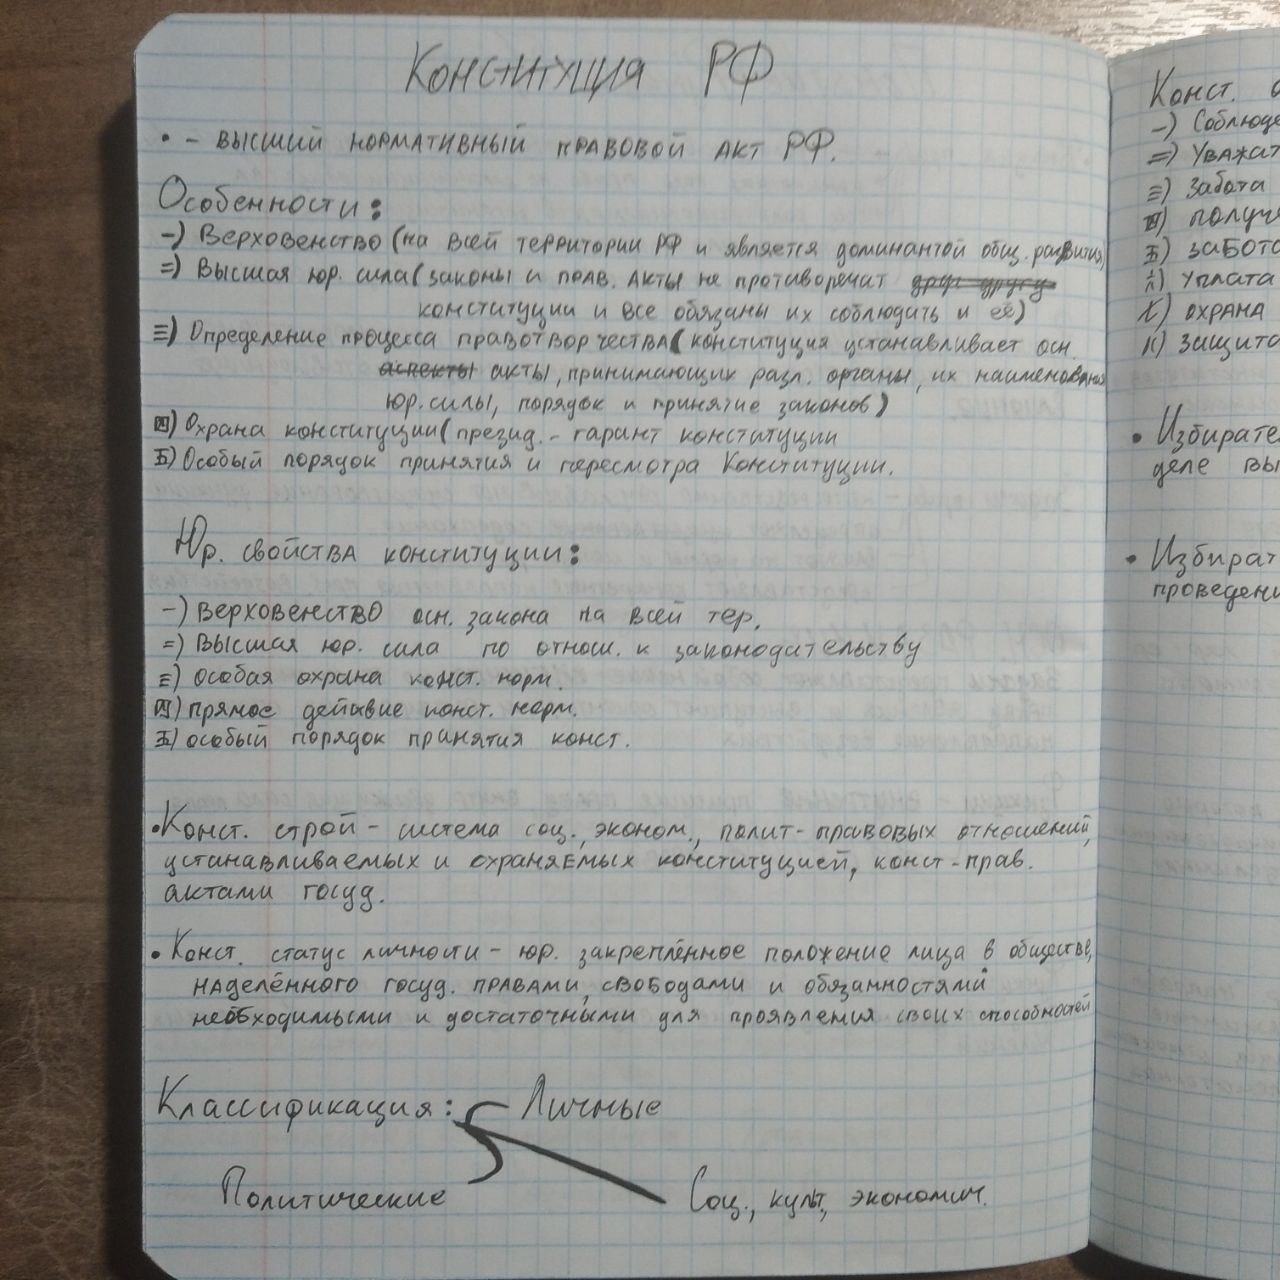 Конституция РФ
• - высший нормативный правовой акт РФ.
Особенности:
-) Верховенство (на всей территории РФ и является доминантой общ. развития)
=) Высшая юр. сила (законы и подв. акты не противоречат друг другу
конституции и все обязаны их соблюдать и её)
≡) Определение процесса правотворчества (конституция устанавливает осн.
аспекты акты, принимающих разл. органы, их наименования
юр. силы, порядок и принятие законов)
四) Охрана конституции (презид. - гарант конституции
五) Особый порядок принятия и пересмотра Конституции.
Юр. свойства конституции:
-) Верховенство осн. закона на всей тер.
=) Высшая юр. сила по относ. к законодательству
≡) особая охрана конст. норм.
四) прямое действие конст. норм.
五) особый порядок принятия конст.
• Конст. строй - система соц., эконом., полит-правовых отношений,
устанавливаемых и охраняемых конституцией, конст-прав.
актами госуд.
• Конст. статус личности - юр. закреплённое положение лица в обществе,
наделённого госуд. правами, свободами и обязанностями
необходимыми и достаточными для проявления своих способностей
Классификация: Личные
Политические Соц., культ, экономич.
Конст.
-) Соблюде
=) Уважат
≡) Забота
四) получе
五) забота
六) уплата
七) охрана
八) защита
• Избирате
деле вы
• Избират
проведени